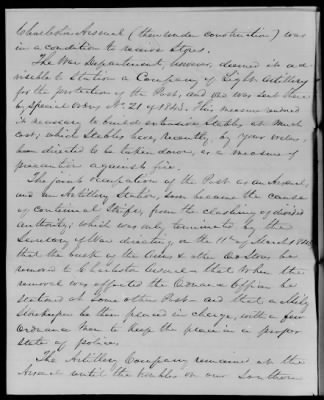 Charleston Arsenal (then under construction) was
in a condition to receive Stores.
The War Department, however, deemed it ad-
visable to station a Company of Light Artillery
for the protection of the Post, and one was sent there
by Special Order No. 21 of 1843. This measure caused
it necessary to build extensive Stables at much
cost; which Stables have, recently, by your orders,
been directed to be taken down, as a measure of
precaution against fire.
The joint occupation of the Post as an Arsenal,
and an Artillery Station, soon became the cause
of continual Strife, from the clashing of divided
authority; which was only terminated by the
Secretary of War directing, on the 11th of March
that the bulk of the Arms & other Ord Stores be
removed to Charleston Arsenal & that when the
removal was effected the Ordnance Officer be
stationed at some other Post - and that a Mily
Storekeeper be then placed in charge, with a few
Ordnance Men to keep the place in a proper
state of police.
The Artillery Company remained at the
Arsenal until the troubles on our Southern